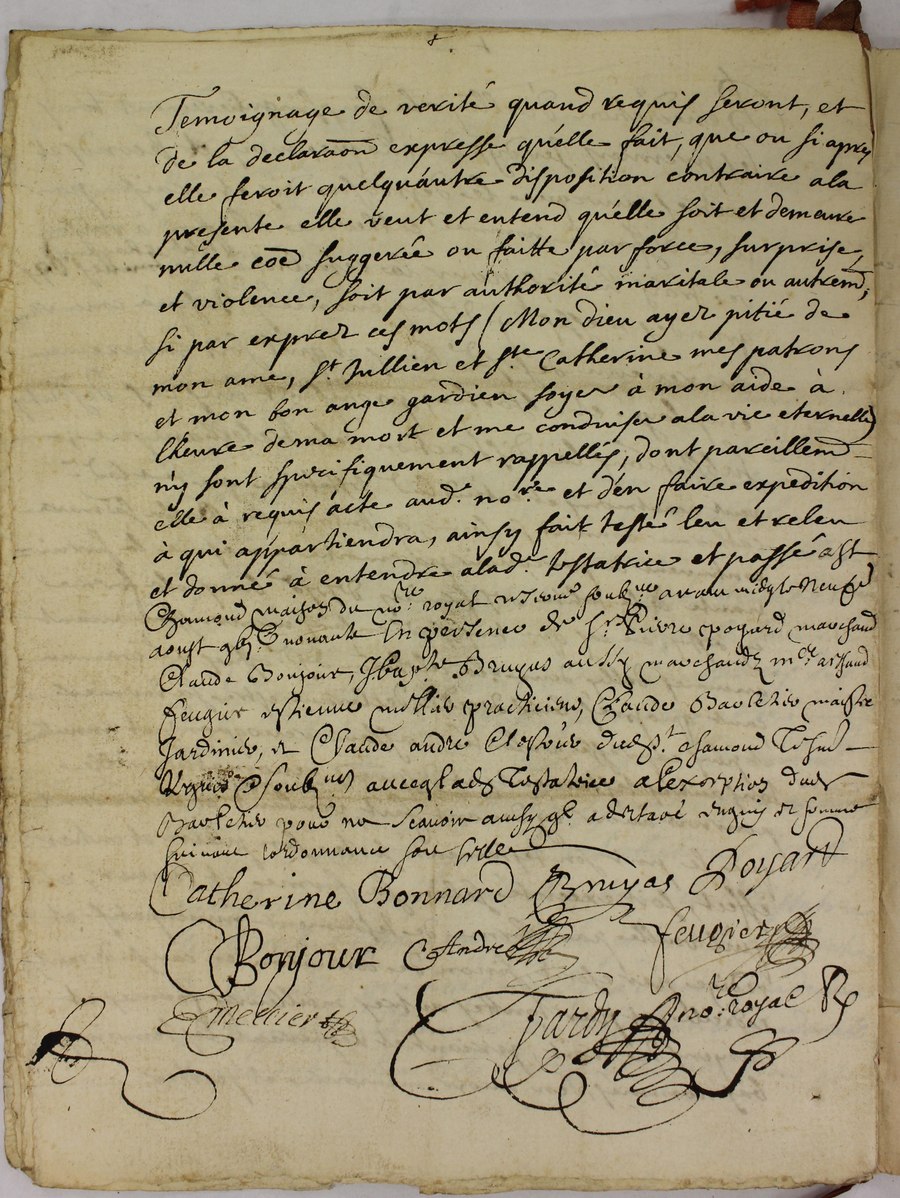 Temoignage de verité quand requis seront, et
de la declaraõn expresse qu'elle fait, que ou si apres
elle feroit quelqu'autre disposition contraire a la
presente elle veut et entend qu'elle soit et demeure
nulle coē suggerée ou faitte par force, surprise,
et violence, soit par authorité maritale ou autrem̃,
si par exprez ces mots (Mon dieu ayez pitié de
mon ame, St. Jullien et Ste. Catherine mes patrons
et mon bon ange gardien soyez à mon aide à
l'heure de ma mort et me conduisez a la vie eternelle)
n'y sont specifiquement rappellés, dont pareillem̃
elle à requis acte aud. no.re et d'en faire expedition
à qui appartiendra, ainsy fait testé leu et releu
et donné à entendre a lad. testatrice et passé a St
Chamond maison du no.re royal avant midy le neufe
aoust nonante en presence de Sr. Pierre poyard marchand
Claude Bonjour, Jbapte Bruyas aussy marchandz
feugier estienne mellier practicien, Claude maistre
Jardinier, et Claude andre dud St. chamond
auec lad Testatrice a lexeption dud
pour ne scauoir ainsy requis et somme
suiuant lordonnance
Catherine Bonnard Bruyas Poyard
Bonjour CAndre feugier
EMellier Pardy no.re royal